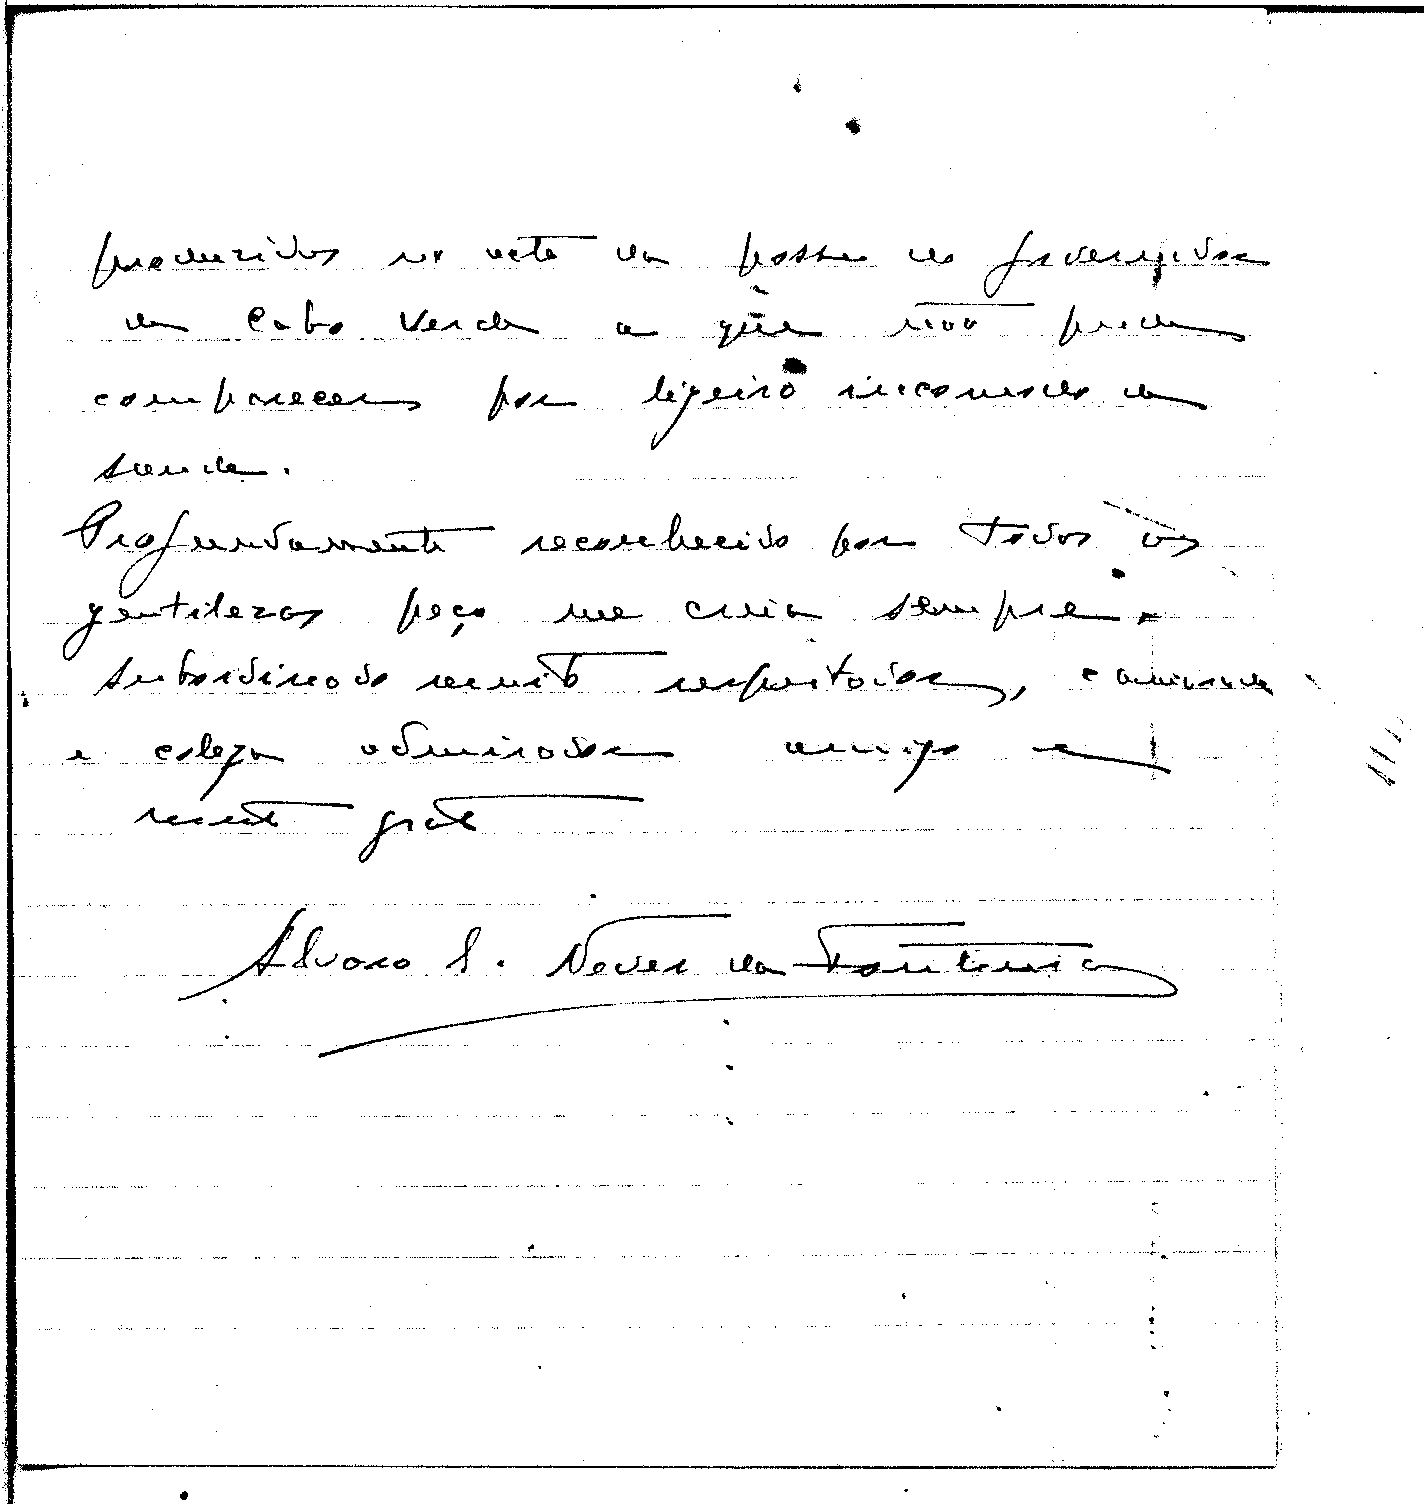 produzidos no acto da posse do Governador
de Cabo Verde a que não pude
comparecer por ligeiro incomodo de
saude.
Profundamente reconhecido por todas as
gentilezas peço me creia sempre
subordinado muito respeitador, camarada
e colega admirador amigo e
muito grato
Alvaro S. Neves da Fontoura